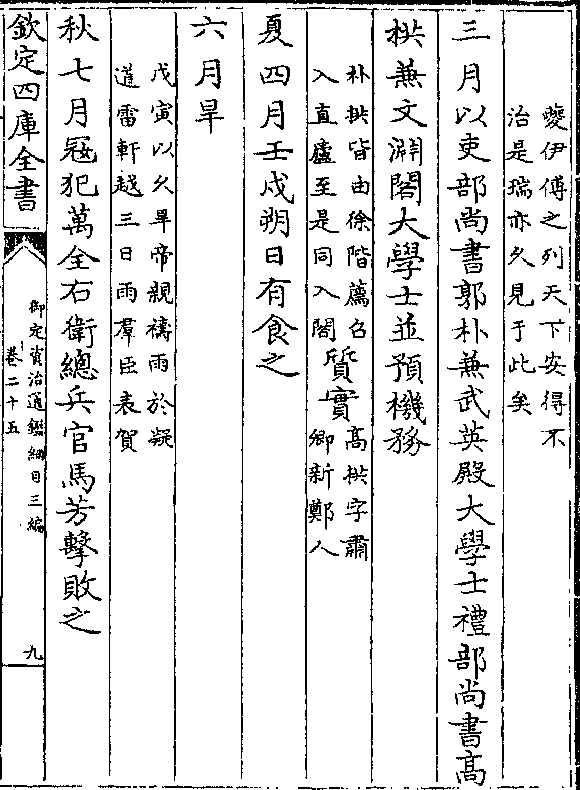 夔伊傅之列天下安得不
治是瑞亦久見于此矣
三月以吏部尚書郭朴兼武英殿大學士禮部尚書高
拱兼文淵閣大學士並預機務
朴拱皆由徐階薦召
入直廬至是同入閣
質實
高拱字肅
卿新鄭人
夏四月壬戌朔日有食之
六月旱
戊寅以久旱帝親禱雨於凝
道雷軒越三日雨羣臣表賀
秋七月寇犯萬全右衛總兵官馬芳擊敗之
欽定四庫全書
御定資治通鑑綱目三編
卷二十五
九